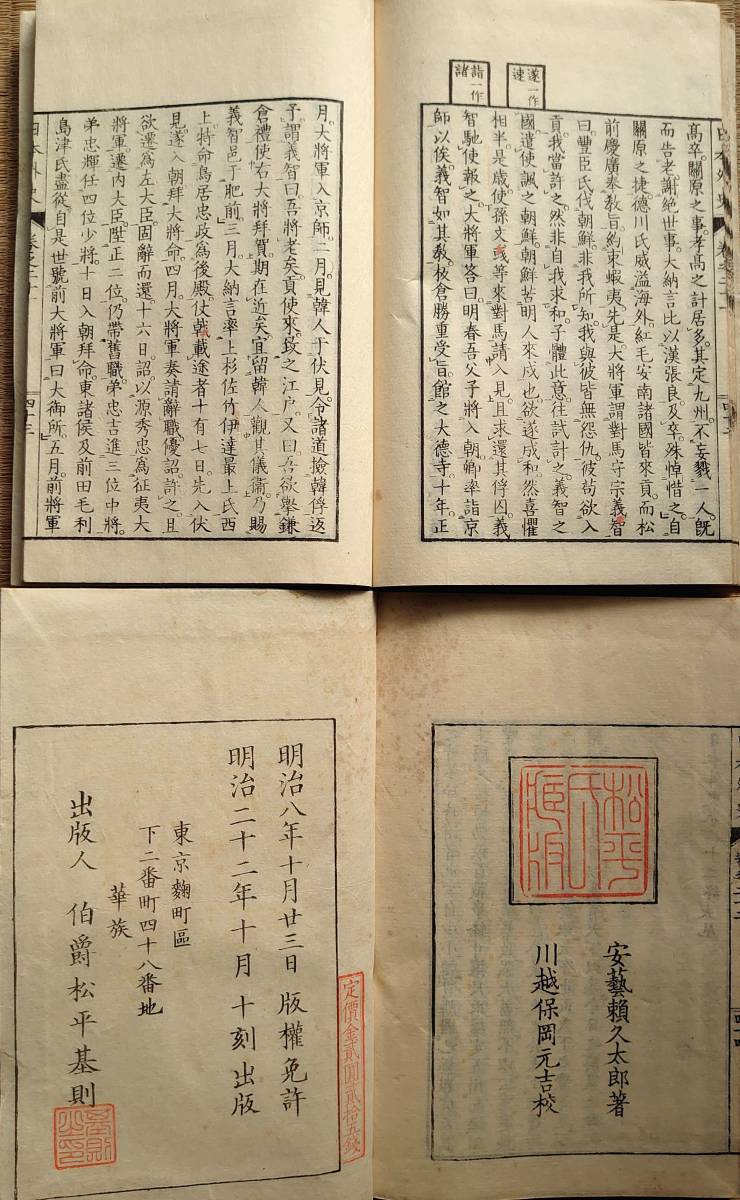 遂一作速
詣一作諸
高卒。關原之事。孝高之計居多。其定九州。不妄戮一人。旣
而告老。謝絕世事。大納言比以漢張良。及卒。殊悼惜之。自
關原之捷。德川氏威溢海外。紅毛安南諸國皆來貢。而松
前慶廣奉敎旨。約束蝦夷。先是。大將軍謂對馬守宗義智
曰。豐臣氏伐朝鮮。非我所知。我與彼皆無怨仇。彼苟欲入
貢。我當許之。然非自我求和。子體此意。往試計之。義智之
國遣使諷之朝鮮。朝鮮苦明人來戍也。欲遂成和。然喜懼
相半。是歲使孫文彧等來對馬請入見。且求還其俘囚。義
智馳使報之。大將軍答曰。明春吾父子將入朝。卿率詣京
師以俟。義智如其敎。板倉勝重受旨。館之大德寺。十年。正
月。大將軍入京師。二月。見韓人于伏見。令諸道撿韓俘返
予。謂義智曰。吾將老矣。貢使來。致之江戶。又曰。吾欲擧鎌
倉禮。使右大將拜賀。期在近矣。宜留韓人觀其儀衞。乃賜
義智邑于肥前。三月。大納言率上杉佐竹伊達最上氏西
上。特命鳥居忠政爲後殿。仗載途者十有七日。先入伏
見。遂入朝拜大將命。四月。大將軍奏請辭職。優詔許之。且
欲遷爲左大臣。固辭而還。十六日。詔以源秀忠爲征夷大
將軍。遷內大臣。陛正二位。仍帶舊職。弟忠吉進三位中將。
弟忠輝仕四位少將。十日入朝拜命。東諸侯及前田毛利
島津氏盡從。自是世號前大將軍曰大御所。五月。前將軍
日本外史 卷之二十一 四十三
松平氏藏版
安藝賴久太郎著
川越保岡元吉校
明治八年十月廿三日 版權免許
明治二十二年十月 十刻出版
東京麴町區
下二番町四十八番地
華族
出版人 伯爵松平基則
定價金貳圓貳拾五錢
基則之印